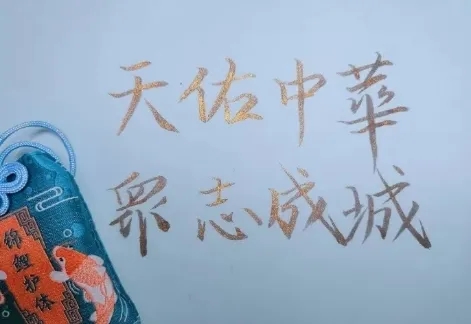 天佑中華
眾志成城
锦鲤护体